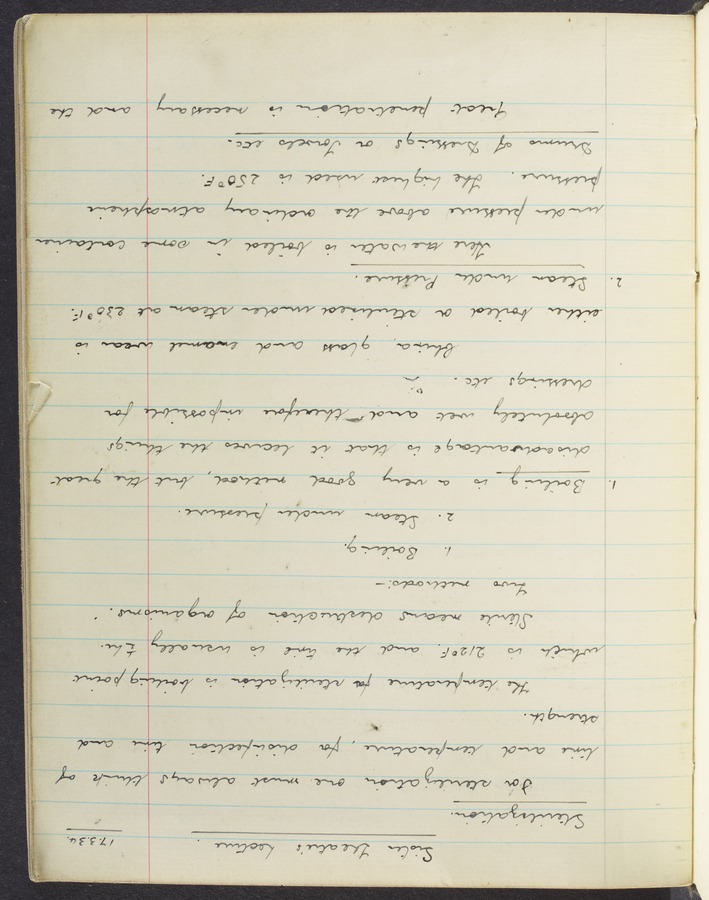 17.3.34.
Sister Theatre's Lecture.
Sterilization.
For sterilization one must always think of
time and temperature, for disinfection time and
strength.
The temperature for sterilization is boiling point
which is 212°F. and the time is usually ½ hr.
Sterile means destruction of organisms.
Two methods:-
1. Boiling.
2. Steam under pressure.
1. Boiling is a very good method, but the great
disadvantage is that it leaves the things
absolutely wet and therefore impossible for
dressings etc.
China, glass and enamel wear is
either boiled or sterilized under steam at 230°F.
2. Steam under Pressure.
Here the water is boiled in some container
under pressure above the ordinary atmospheric
pressure. The highest used is 250°F.
Drums of Dressings or Towels etc.
Great penetration is necessary and the